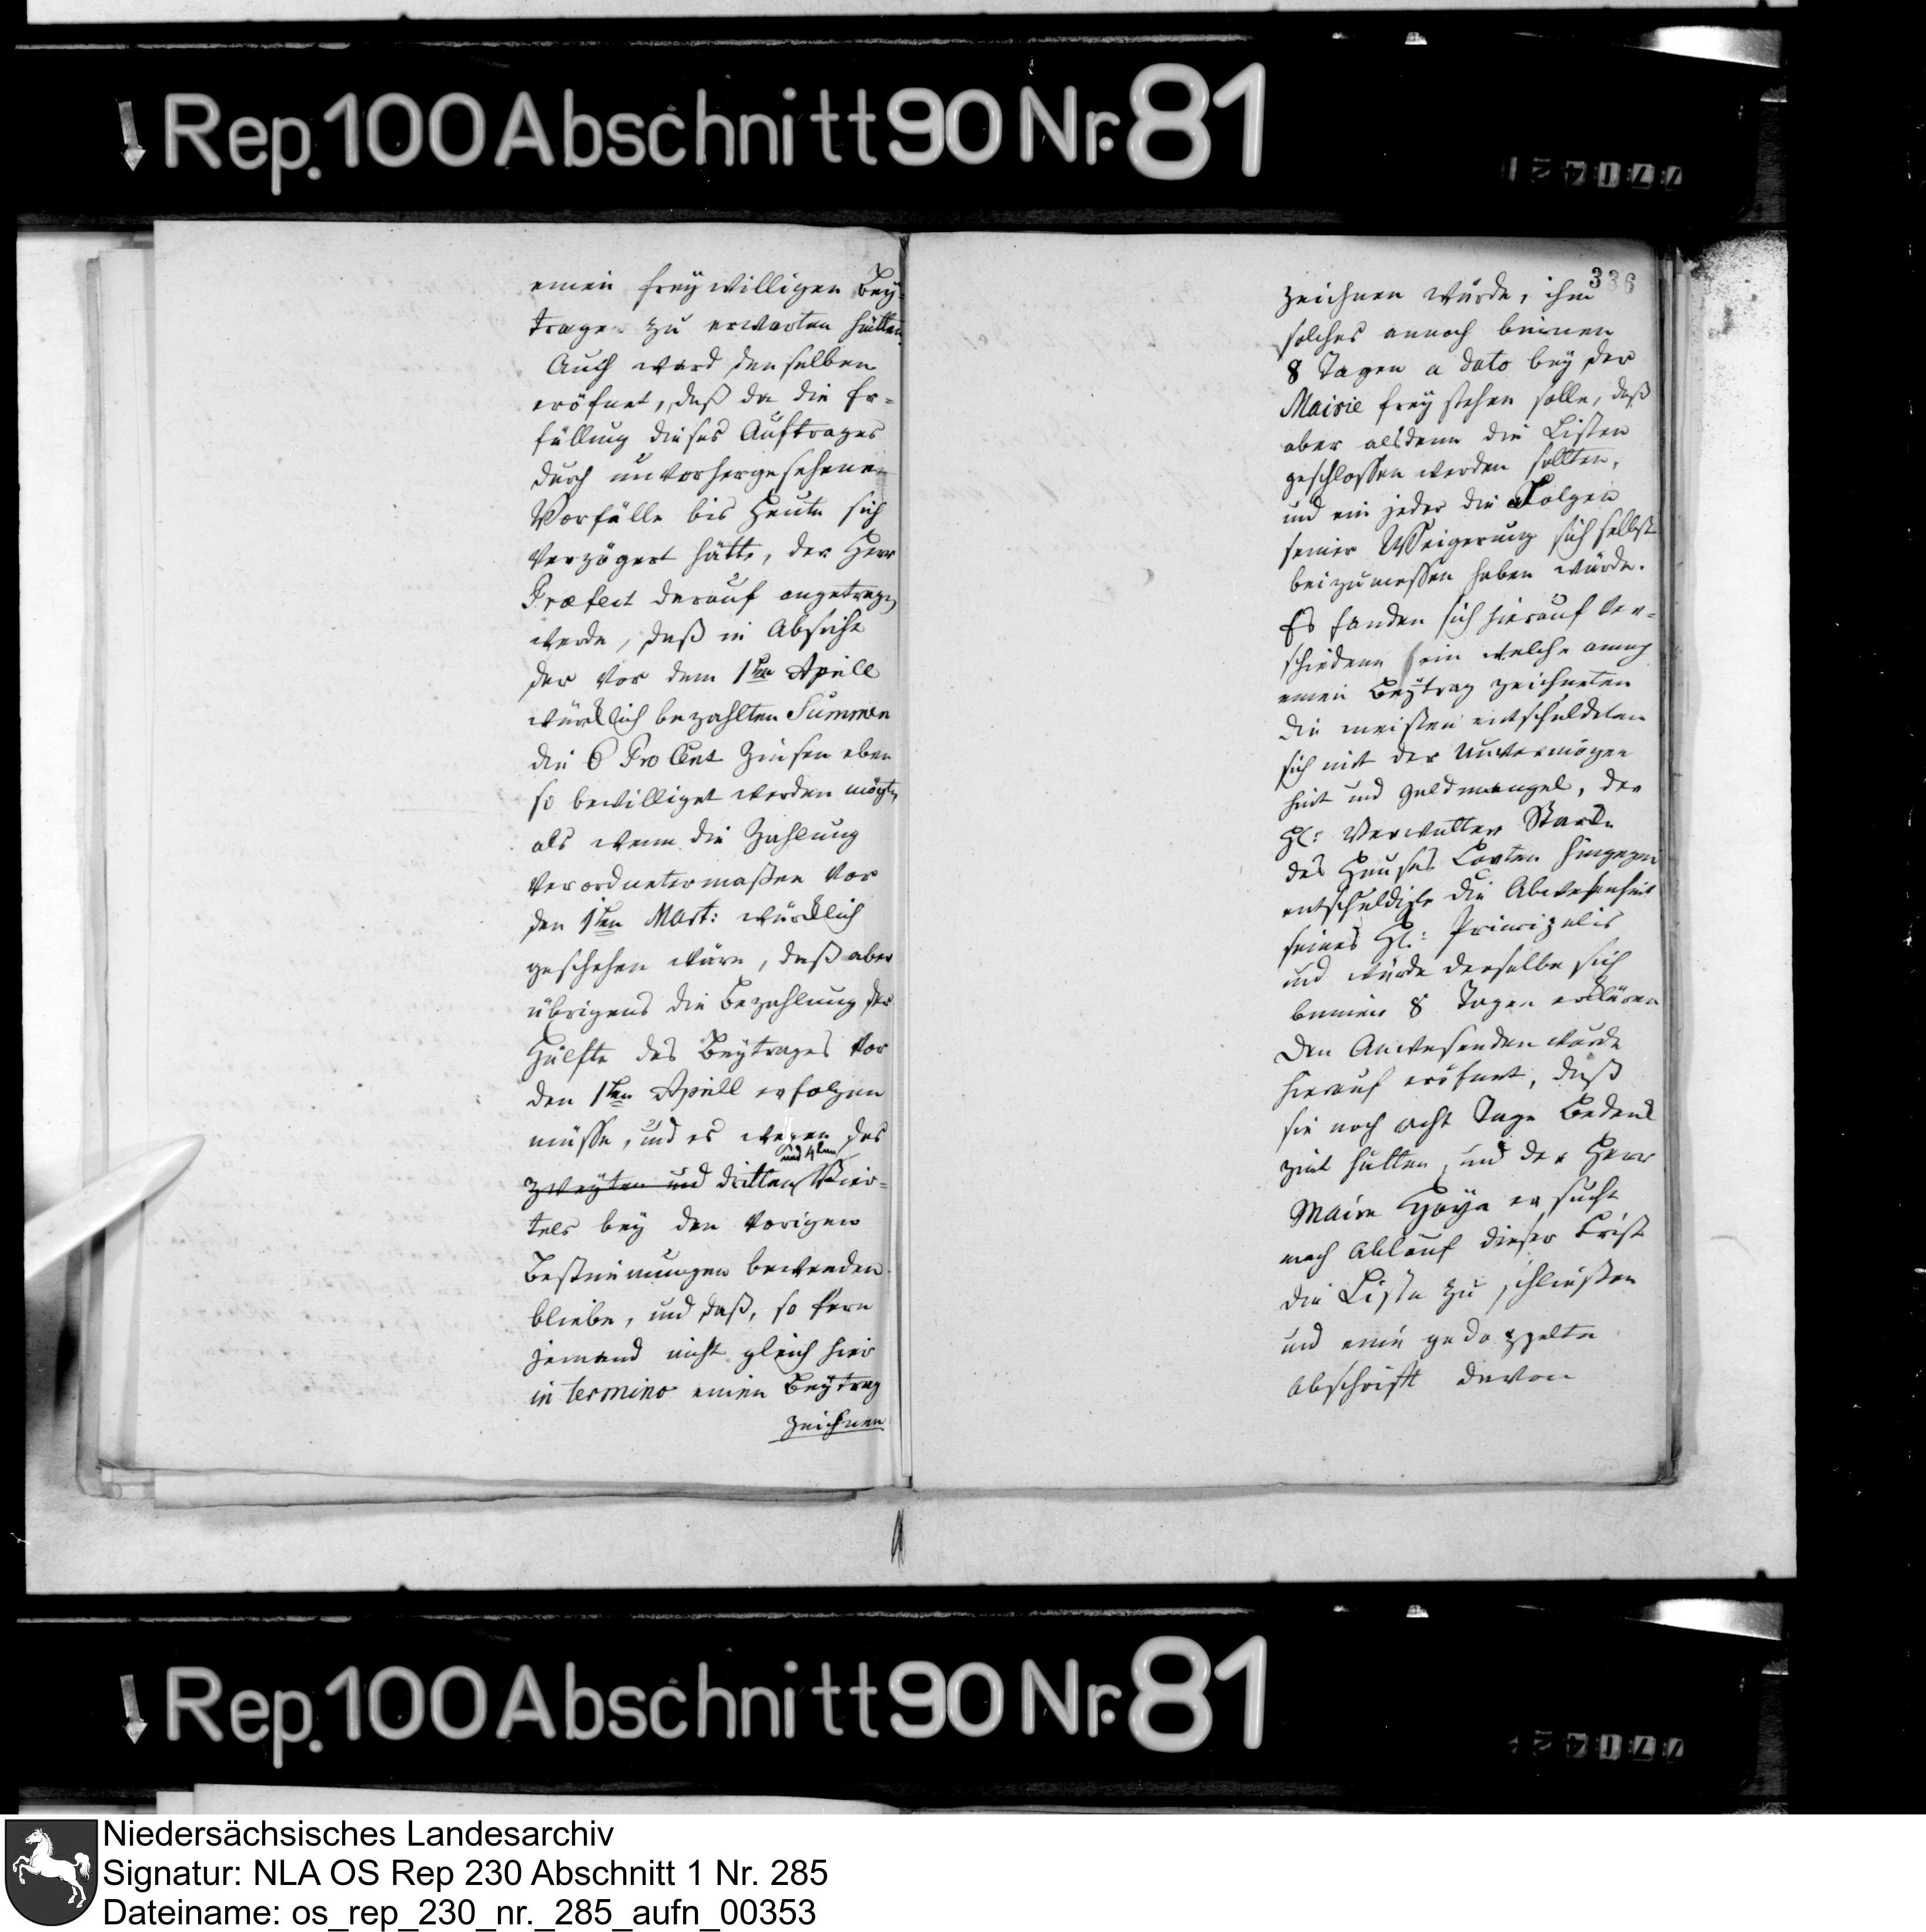 Rep. 100 Abschnitt 90 Nr. 81
einen freywilligen Bey-
trage zu erwarten hätten.
Auch ward denselben
eröfnet, daß da die Er-
füllung dieses Auftrages
durch unvorhergesehene
Vorfälle bis Heute sich
verzögert hätte, der Herr
Præfect darauf angetragen
werde, daß in Absicht
der vor dem 1ten Aprill
würcklich bezahlten Summen
die 6 Pro Cent Zinsen eben
so bewilliget werden mögten
als wenn die Zahlung
verordnetermaßen vor
den 1ten Mart: würcklich
geschehen wäre, daß aber
übrigens die Bezahlung der
Hülfte des Beytrages vor
den 1ten Aprill erfolgen
müsse, und es wegen des
und 4ten
zweyten und dritten Vier-
tels bey den vorigen
Bestimmungen bewenden
bliebe, und daß, so fern
jemand nicht gleich hier
in termino einen Beytrag
zeichnen
336
zeichnen würde, ihm
solches annoch binnen
8 Tagen a dato bey der
Mairie frey stehen solle, daß
aber alsdenn die Listen
geschlossen werden sollten,
und ein jeder die Folgen
seiner Weigerung sich selbst
beizumessen haben würde.
Es fanden sich hierauf ver-
schiedene ein welche
einen Beytrag zeichneten
die meisten entschuldeten
sich mit der Unvermögen
heit und Geldmangel, der
H: Verwalter Starcke
des Hauses hingegen
entschuldigte die Abwesenheit
seines H: Principalis
und würde derselbe sich
binnen 8 Tagen erklären
Den Anwesenden wurde
hierauf eröfnet, daß
sie noch acht Tage Bedenck
zeit hätten, und der Herr
Maire Hoya ersucht
nach Ablauf dieser Frist
die Liste zu schliessen
und eine gedoppelte
Abschrift davon
Rep. 100 Abschnitt 90 Nr. 81
Niedersächsisches Landesarchiv
Signatur: NLA OS Rep 230 Abschnitt 1 Nr. 285
Dateiname: os_rep_230_nr._285_aufn_00353